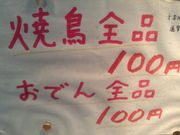 焼鳥全品
100円
おでん 全品
100円